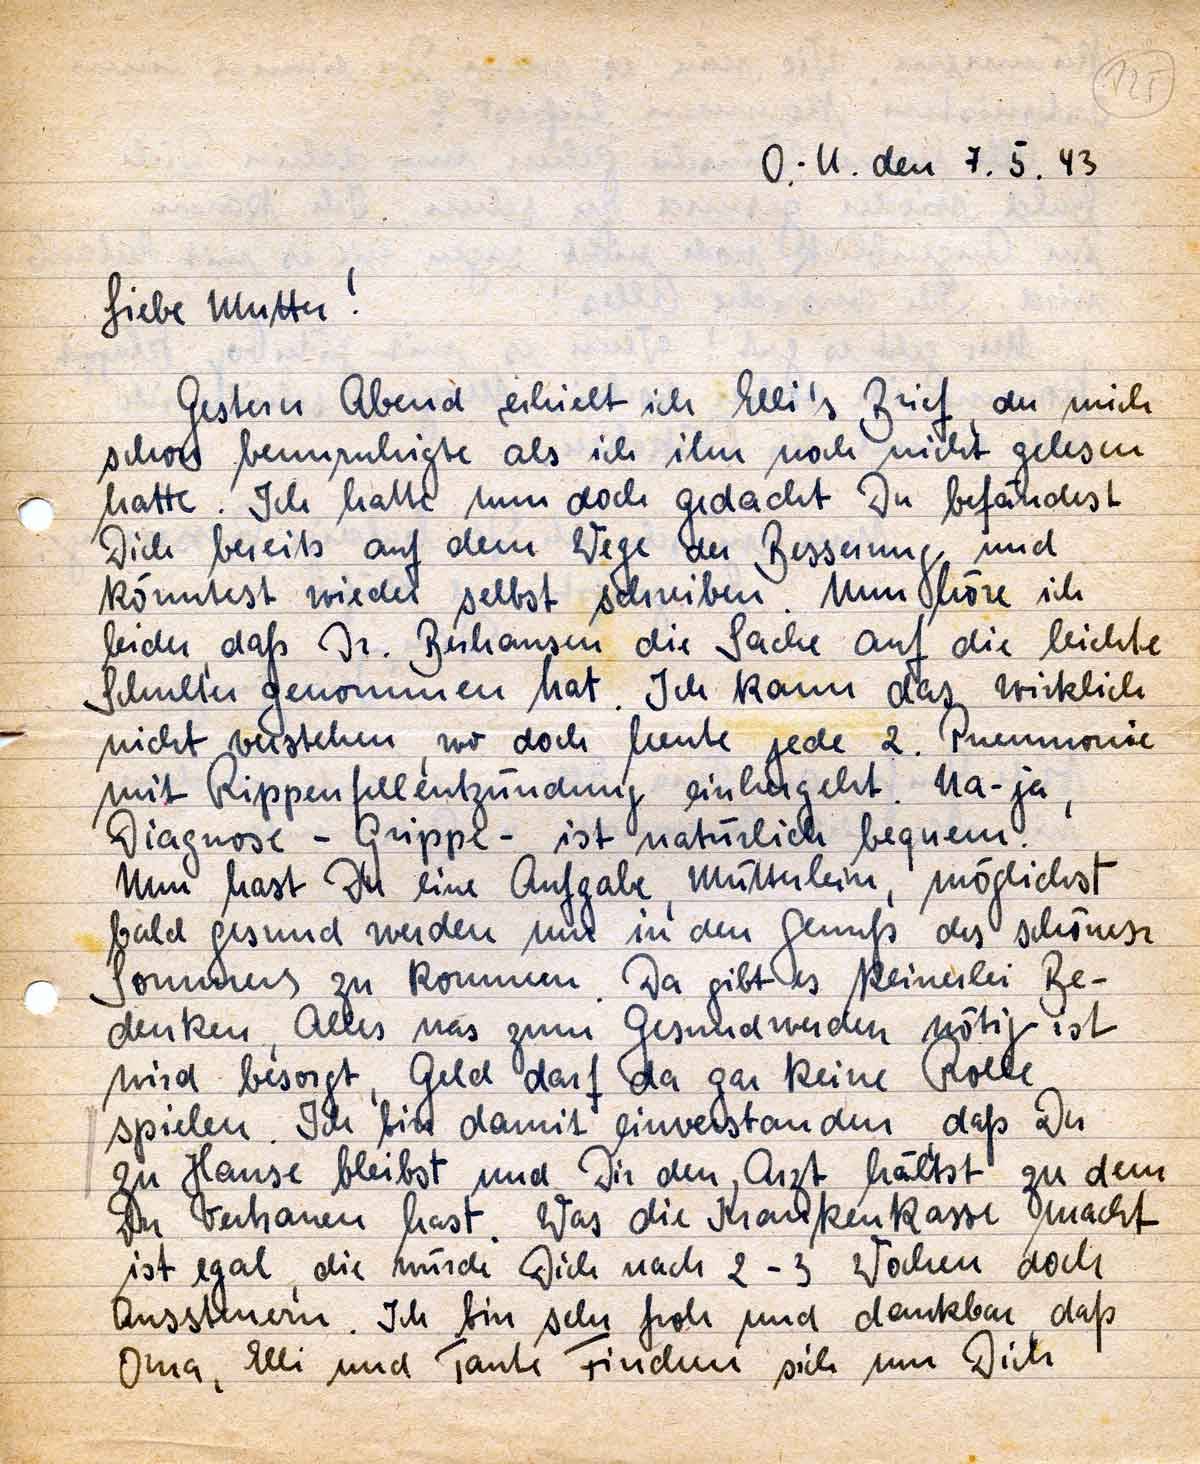 125
O.-U. den 7. 5. 43
Liebe Mutter!
Gestern Abend erhielt ich Elli's Brief, der mich
schon beunruhigte als ich ihn noch nicht gelesen
hatte. Ich hatte nun doch gedacht Du befändest
Dich bereits auf dem Wege der Besserung und
könntest wieder selbst schreiben. Nun höre ich
leider, daß Dr. die Sache auf die leichte
Schulter genommen hat. Ich kann das wirklich
nicht verstehen, wo doch heute jede 2. Pneumonie
mit Rippenfellentzündung einhergeht. Na-ja,
Diagnose - Grippe - ist natürlich bequem.
Nun hast Du eine Aufgabe, Mütterlein, möglichst
bald gesund werden um in den Genuß des schönen
Sommers zu kommen. Da gibt es keinerlei Be-
denken, Alles was zum Gesundwerden nötig ist
wird besorgt, Geld darf da gar keine Rolle
spielen. Ich bin damit einverstanden, daß Du
zu Hause bleibst und Dir den Arzt hältst zu dem
Du Vertrauen hast. Was die Krankenkasse macht
ist egal, die würde Dich nach 2 - 3 Wochen doch
aussteuern. Ich bin sehr froh und dankbar, daß
Oma, Elli und Tante Finchen sich um Dich